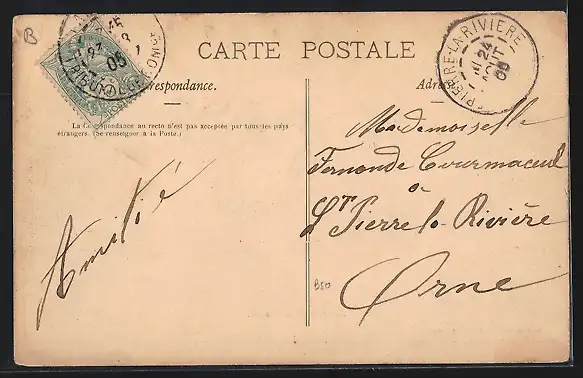 B
CARTE POSTALE
respondance.
Adre
La Correspondance au recto n'est pas acceptée par tous les pays
étrangers. (Se renseigner à la Poste.)
PIERRE-LA-RIVIERE
24
06
05
Mademoiselle
Fernande Courmaceul
à
St Pierre la Rivière
Orne
Amitié